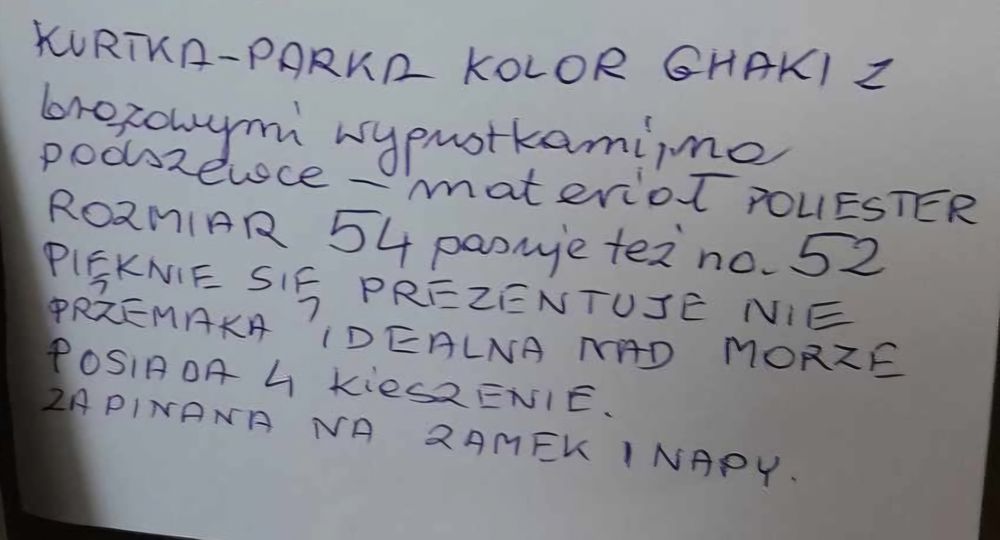 KURTKA-PARKA KOLOR GHAKI Z
brązowymi wypustkami, na
podszewce - materiał POLIESTER
ROZMIAR 54 pasuje też na. 52
PIĘKNIE SIĘ PREZENTUJE NIE
PRZEMAKA IDEALNA NAD MORZE
POSIADA 4 KIESZENIE.
ZAPINANA NA ZAMEK I NAPY.